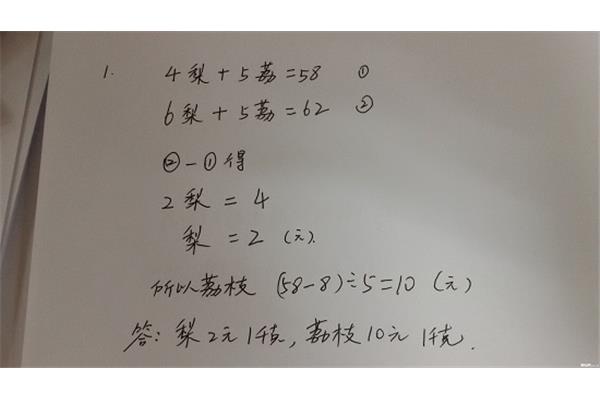 1. 4梨+5荔=58 ①
6梨+5荔=62 ②
②-①得
2梨=4
梨=2(元).
所以荔枝 (58-8)÷5=10 (元)
答:梨2元1千克,荔枝10元1千克.